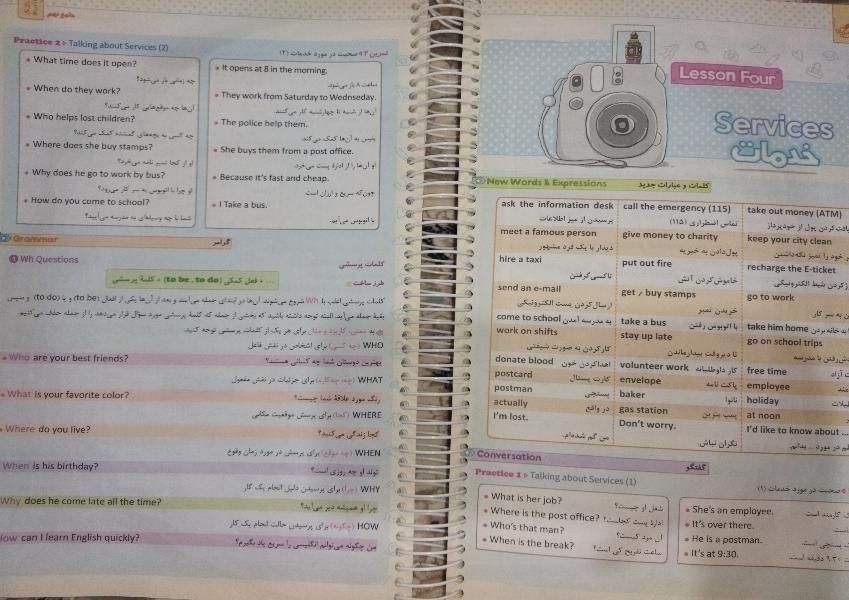 جامع نهم
Practice 2 ▸ Talking about Services (2)
تمرین ۲ ◂ صحبت در مورد خدمات (۲)
• What time does it open?
چه زمانی باز می‌شود؟
• When do they work?
آن‌ها چه موقع‌هایی کار می‌کنند؟
• Who helps lost children?
چه کسی به بچه‌های گمشده کمک می‌کند؟
• Where does she buy stamps?
او از کجا تمبر نامه می‌خرد؟
• Why does he go to work by bus?
او چرا با اتوبوس به سر کار می‌رود؟
• How do you come to school?
شما با چه وسیله‌ای به مدرسه می‌آیید؟
• It opens at 8 in the morning.
ساعت ۸ باز می‌شود.
• They work from Saturday to Wednseday.
آن‌ها از شنبه تا چهارشنبه کار می‌کنند.
• The police help them.
پلیس به آن‌ها کمک می‌کند.
• She buys them from a post office.
او آن‌ها را از ادارهٔ پست می‌خرد.
• Because it's fast and cheap.
چون‌که سریع و ارزان است.
• I Take a bus.
با اتوبوس می‌آیم.
Grammar
گرامر
1 Wh Questions
کلمات پرسشی
طرز ساخت
... + فعل کمکی (to be , to do) + کلمهٔ پرسشی
کلمات پرسشی اغلب با Wh شروع می‌شوند. آن‌ها در ابتدای جمله می‌آیند و بعد از آن‌ها یکی از افعال (to be) و یا (to do) و سپس
بقیهٔ جمله می‌آید. البته توجه داشته باشید که بخشی از جمله که کلمهٔ پرسشی مورد سؤال قرار می‌دهد را از جمله حذف می‌کنیم.
به معنی، کاربرد و مثال برای هر یک از کلمات پرسشی توجه کنید.
WHO (چه کسی) برای اشخاص در نقش فاعل
• Who are your best friends?
بهترین دوستان شما چه کسانی هستند؟
WHAT (چه، چه‌کار) برای جزئیات در نقش مفعول
• What is your favorite color?
رنگ مورد علاقهٔ شما چیست؟
WHERE (کجا) برای پرسش موقعیت مکانی
Where do you live?
کجا زندگی می‌کنید؟
WHEN (چه موقع) برای پرسش در مورد زمان وقوع
When is his birthday?
تولد او چه روزی است؟
WHY (چرا) برای پرسیدن دلیل انجام یک کار
Why does he come late all the time?
چرا او همیشه دیر می‌آید؟
HOW (چگونه) برای پرسیدن حالت انجام یک کار
How can I learn English quickly?
من چگونه می‌توانم انگلیسی را سریع یاد بگیرم؟
Lesson Four
Services
خدمات
New Words & Expressions
کلمات و عبارات جدید
ask the information desk
پرسیدن از میز اطلاعات
call the emergency (115)
تماس اضطراری (۱۱۵)
take out money (ATM)
یافت کردن پول از خودپرداز
meet a famous person
دیدار با یک فرد مشهور
give money to charity
پول‌دادن به خیریه
keep your city clean
خود را تمیز نگه‌داشتن
hire a taxi
تاکسی گرفتن
put out fire
خاموش‌کردن آتش
recharge the E-ticket
کردن بلیط الکترونیکی
send an e-mail
ارسال‌کردن پست الکترونیکی
get / buy stamps
خریدن تمبر
go to work
به سر کار
come to school به مدرسه آمدن
take a bus با اتوبوس رفتن
take him home به خانه بردن
work on shifts
کارکردن به صورت شیفتی
stay up late
تا دیروقت بیدارماندن
go on school trips
رفتن با مدرسه
donate blood اهداکردن خون
volunteer work کار داوطلبانه
free time
postcard کارت پستال
envelope پاکت نامه
employee
postman پستچی
baker نانوا
holiday
actually در واقع
gas station پمپ بنزین
at noon
I'm lost.
من گم شده‌ام.
Don't worry.
نگران نباش.
I'd like to know about ...
در مورد ... بدانم.
Conversation
گفتگو
Practice 1 ▸ Talking about Services (1)
صحبت در مورد خدمات (۱)
• What is her job?
شغل او چیست؟
• Where is the post office?
ادارهٔ پست کجاست؟
• Who's that man?
آن مرد کیست؟
• When is the break?
ساعت تفریح کی است؟
• She's an employee.
کارمند است.
• It's over there.
• He is a postman.
پستچی است.
• It's at 9:30.
۹:۳۰ دقیقه است.